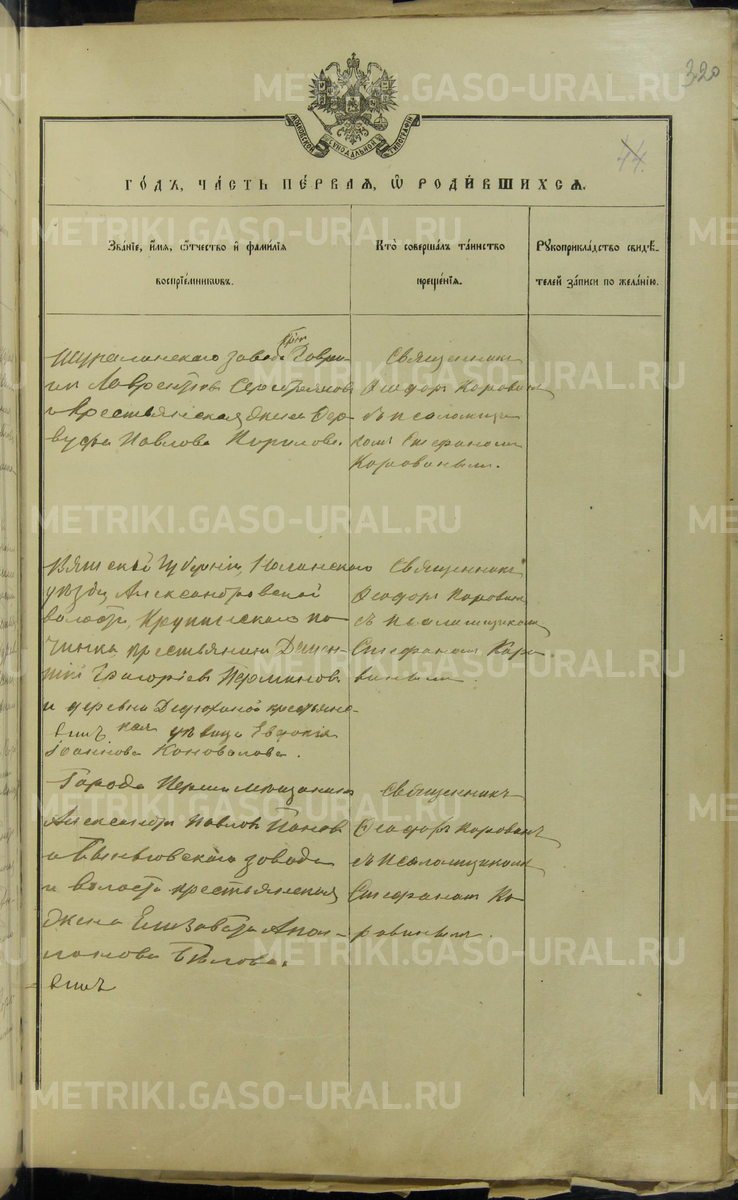 320
44.
МОСКОВСКОЙ СѴНОДАЛЬНОЙ ТИПОГРАФІИ
ГО́ДЪ, ЧА́СТЬ ПЕ́РВАЯ, Ѡ҆ РОДИ́ВШИХСЯ.
Зва́нїе, и҆́мя, ѻ҆́тчество и҆ фами́лїя
воспрїе́мникѡвъ.
Кто̀ соверша́лъ та́инство
креще́нїя.
Рꙋкоприкла́дство свидѣ́-
телей за́писи по жела́нїю.
Шуралинскаго завода Гаври-
ил Лаврентьев
и крестьянская жена
Павлова Кирилова.
Священникъ
Ѳеодоръ Коровин
съ псаломщи-
комъ Стефаном
Коровиным.
Вятской губерніи, Нолинскаго
уѣзда Александровской
волости, по-
чинка крестьянин Демен-
тій Григоріев Перминов
и деревни крестьян-
ская дѣвица Евдокія
Іоаннова Коновалова.
Священникъ
Ѳеодоръ Коровин
съ псаломщиком
Стефаном Коро-
виным.
Города Перми мѣщанин
Александръ Павлов Попов
и Быньговскаго завода
и волости крестьянская
жена Елизавета Апол-
лонова Бѣлова.
Священникъ
Ѳеодоръ Коровинъ
съ псаломщиком
Стефаном Ко-
ровинымъ.
METRIKI.GASO-URAL.RU